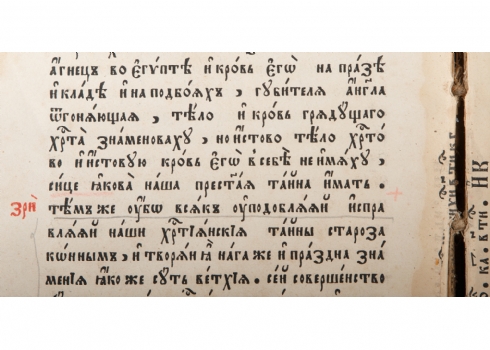 а҆́гнецъ во є҆гѵ́птѣ и҆ кро́вь є҆гѡ̀ на пра́зѣ
и҆ кла́дѣ и҆ на подбо́яхъ, губи́теля а҆́нг҃ла
ѿгоня́ющая, тѣ́ло и҆ кро́вь гряду́щаго
хрⷭ҇та̀ зна́меноваху, но и҆́стово тѣ́ло хрⷭ҇то́
во и҆ и҆́стовую кро́вь є҆гѡ̀ в̾ себѣ̀ не и҆мя́ху,
си́це ꙗ҆кова̀ на́ша прест҃а́я та́йна и҆́мать.
зрѝ
тѣ́мъ же ᲂу҆̀бо вся́къ ᲂу҆подобля́яй и҆спра
вля́яй на́ши хрⷭ҇тїя́нскїя та́йны староза
ко́ннымъ, и҆ твори́ и҆̀ нага̀ же и҆ пра́здна зна
ме́нїя ꙗ҆́ко же су́ть ве́тхїя. се́й соверше́нство